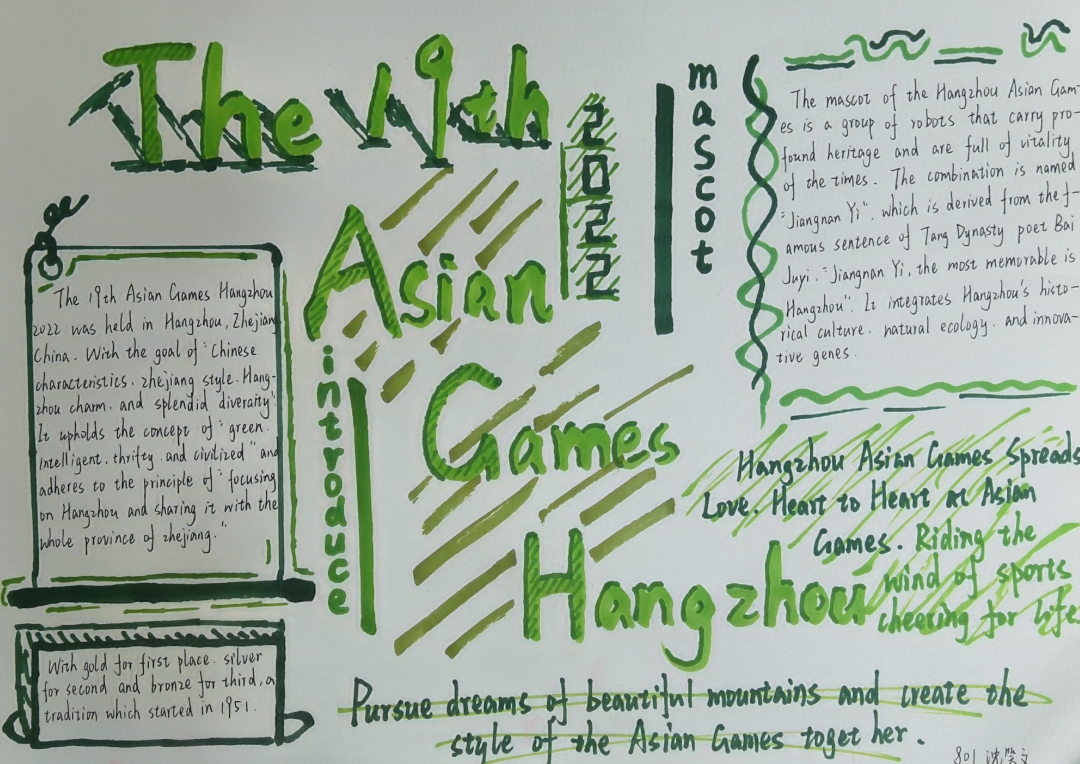 The 19th
2022
Asian
Games
Hangzhou
mascot
The mascot of the Hangzhou Asian Gam-
es is a group of robots that carry pro-
found heritage and are full of vitality
of the times. The combination is named
"Jiangnan Yi", which is derived from the f-
amous sentence of Tang Dynasty poet Bai
Juyi. "Jiangnan Yi, the most memorable is
Hangzhou". It integrates Hangzhou's histo-
rical culture. natural ecology. and innova-
tive genes.
introduce
The 19th Asian Games Hangzhou
2022 was held in Hangzhou, Zhejiang
China. With the goal of "Chinese
characteristics. zhejiang style. Hang-
zhou charm. and splendid diveraity"
It upholds the concept of "green.
intelligent. thrifty. and civilized" and
adheres to the principle of "focusing
on Hangzhou and sharing it with the
whole province of zhejiang."
With gold for first place. silver
for second and bronze for third, a
tradition which started in 1951.
Hangzhou Asian Games Spreads
Love. Heart to Heart at Asian
Games. Riding the
wind of sports
cheering for life
Pursue dreams of beautiful mountains and create the
style of the Asian Games together.
801 沈笑文